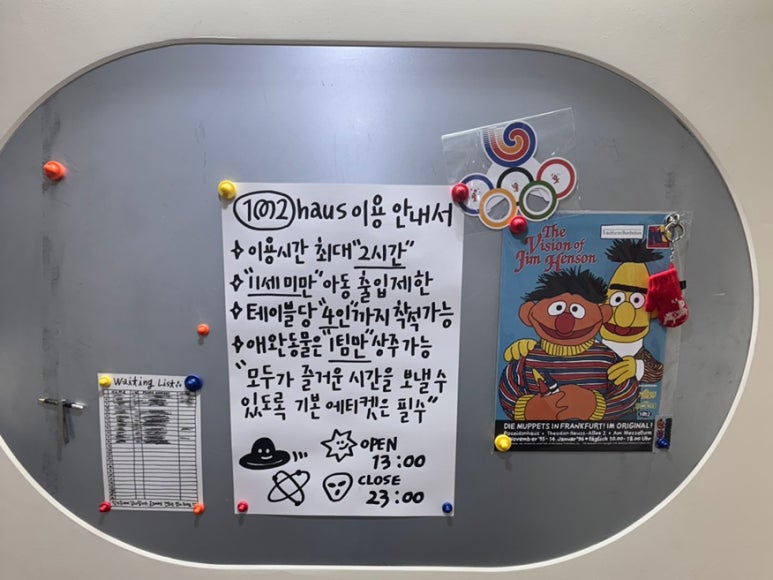 1002 haus 이용 안내서
이용시간 최대 "2시간"
"11세 미만" 아동 출입 제한
테이블당 "4인"까지 착석가능
애완동물은 "1팀만" 상주 가능
"모두가 즐거운 시간을 보낼 수
있도록 기본 에티켓은 필수"
OPEN
13:00
CLOSE
23:00
Waiting List
The
Vision of
Jim Henson
DIE MUPPETS IN FRANKFURT! IM ORIGINAL!
Poseidonhaus • Theodor-Heuss-Allee 2 • Am Messeturm
November '95 - 14. Januar '96 • täglich 10.00 - 18.00 Uhr